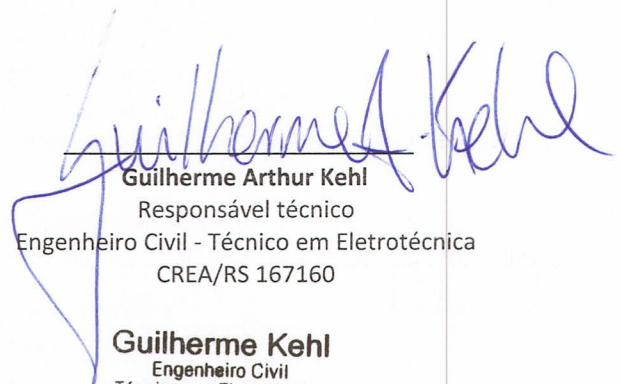 Guilherme A. Kehl
Guilherme Arthur Kehl
Responsável técnico
Engenheiro Civil - Técnico em Eletrotécnica
CREA/RS 167160
Guilherme Kehl
Engenheiro Civil